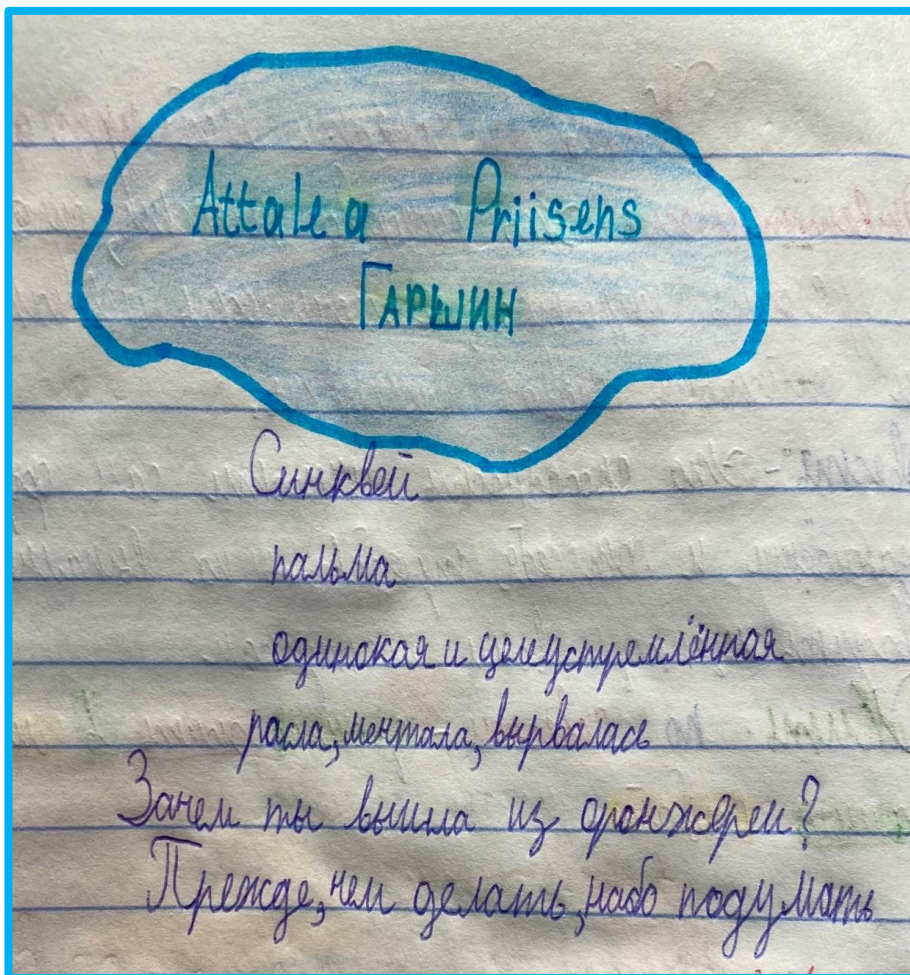 Attalea Priisens
Гаршин
Синквей
пальма
одинокая и целеустремлённая
росла, мечтала, вырвалась
Зачем ты вышла из оранжереи?
Прежде, чем делать, надо подумать